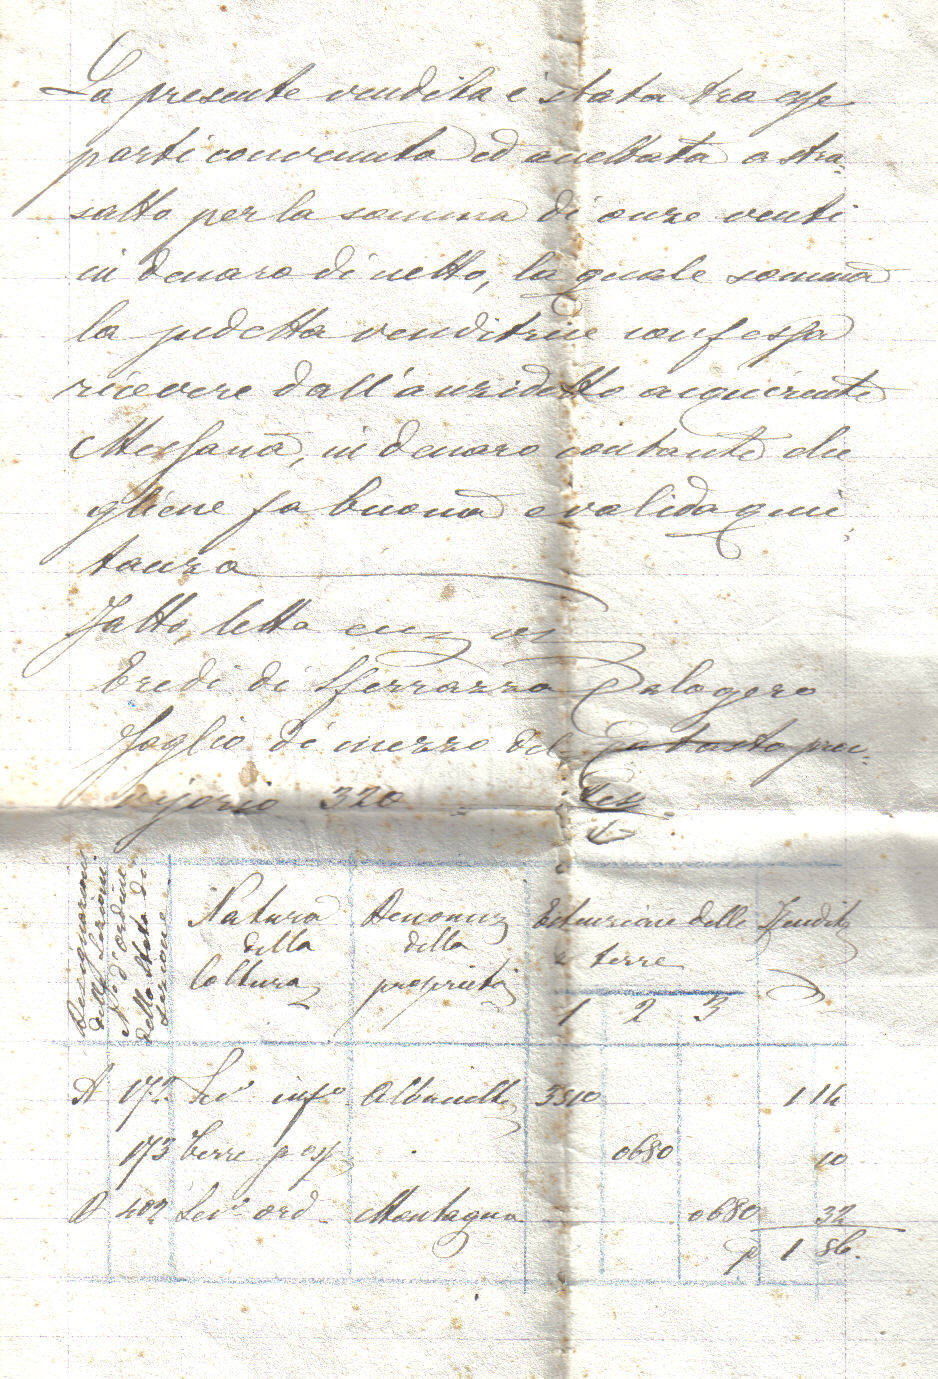 La presente vendita è stata tra esse
parti convenuta ed accettata a stra-
satto per la somma di onze venti
in denaro di netto, la quale somma
la sudetta venditrice confessa
ricevere dall'anzidetto acquirente
Messana, in denaro contante che
gliene fa buona e valida qui-
tanza
Fatto, letto
Eredi di Sferrazza Calogero
Foglio di mezzo del Catasto prov-
visorio 320
Designazioni
delle Sezioni
N. d'ordine
dello Stato di
sezione
Natura
della
Coltura
Denominz
della
proprietà
Estenzione delle
terre
1 2 3
Rendita
A 172 Sem info Albanella 3510 1 14
173 Terre p 0680 10
D 402 Sem ord Montagna 0680 32
1 56.